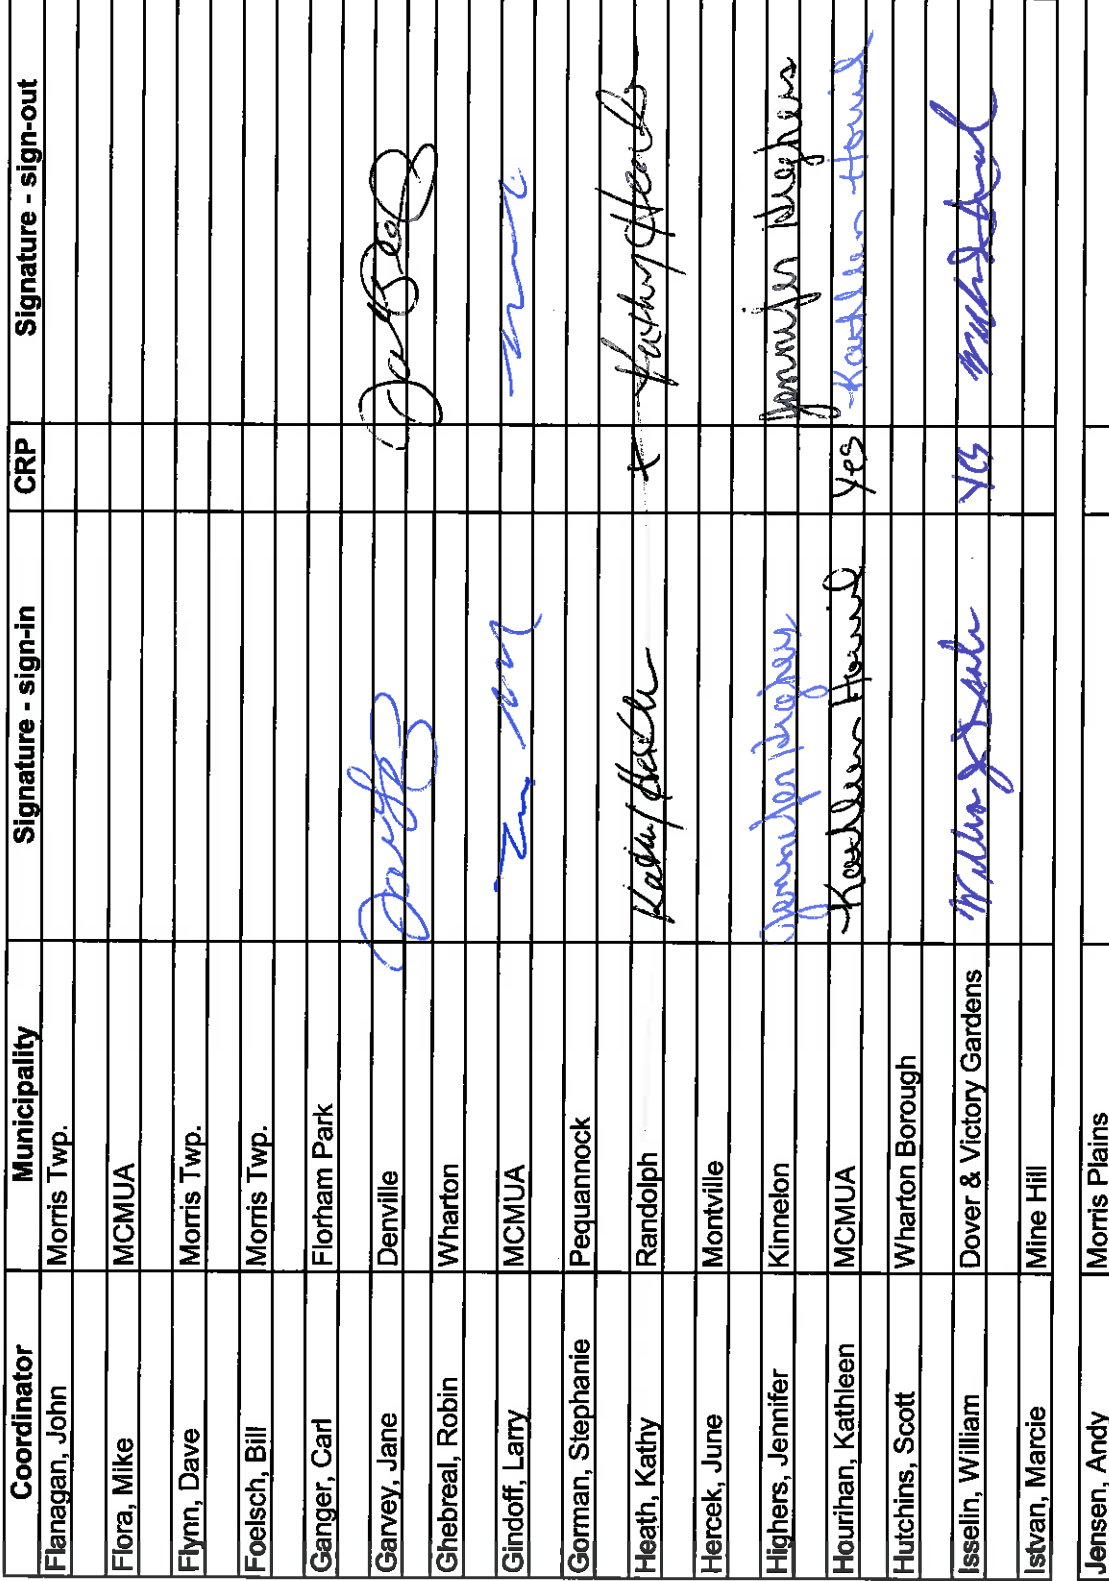 Coordinator Municipality Signature - sign-in CRP Signature - sign-out
Flanagan, John Morris Twp.
Flora, Mike MCMUA
Flynn, Dave Morris Twp.
Foelsch, Bill Morris Twp.
Ganger, Carl Florham Park
Garvey, Jane Denville
Ghebreal, Robin Wharton
Gindoff, Larry MCMUA
Gorman, Stephanie Pequannock
Heath, Kathy Randolph Kathy Heath x Kathy Heath
Hercek, June Montville
Highers, Jennifer Kinnelon Jennifer Highers Jennifer Highers
Hourihan, Kathleen MCMUA Kathleen Yes Kathleen
Hutchins, Scott Wharton Borough
Isselin, William Dover & Victory Gardens William Yes
Istvan, Marcie Mine Hill
Jensen, Andy Morris Plains